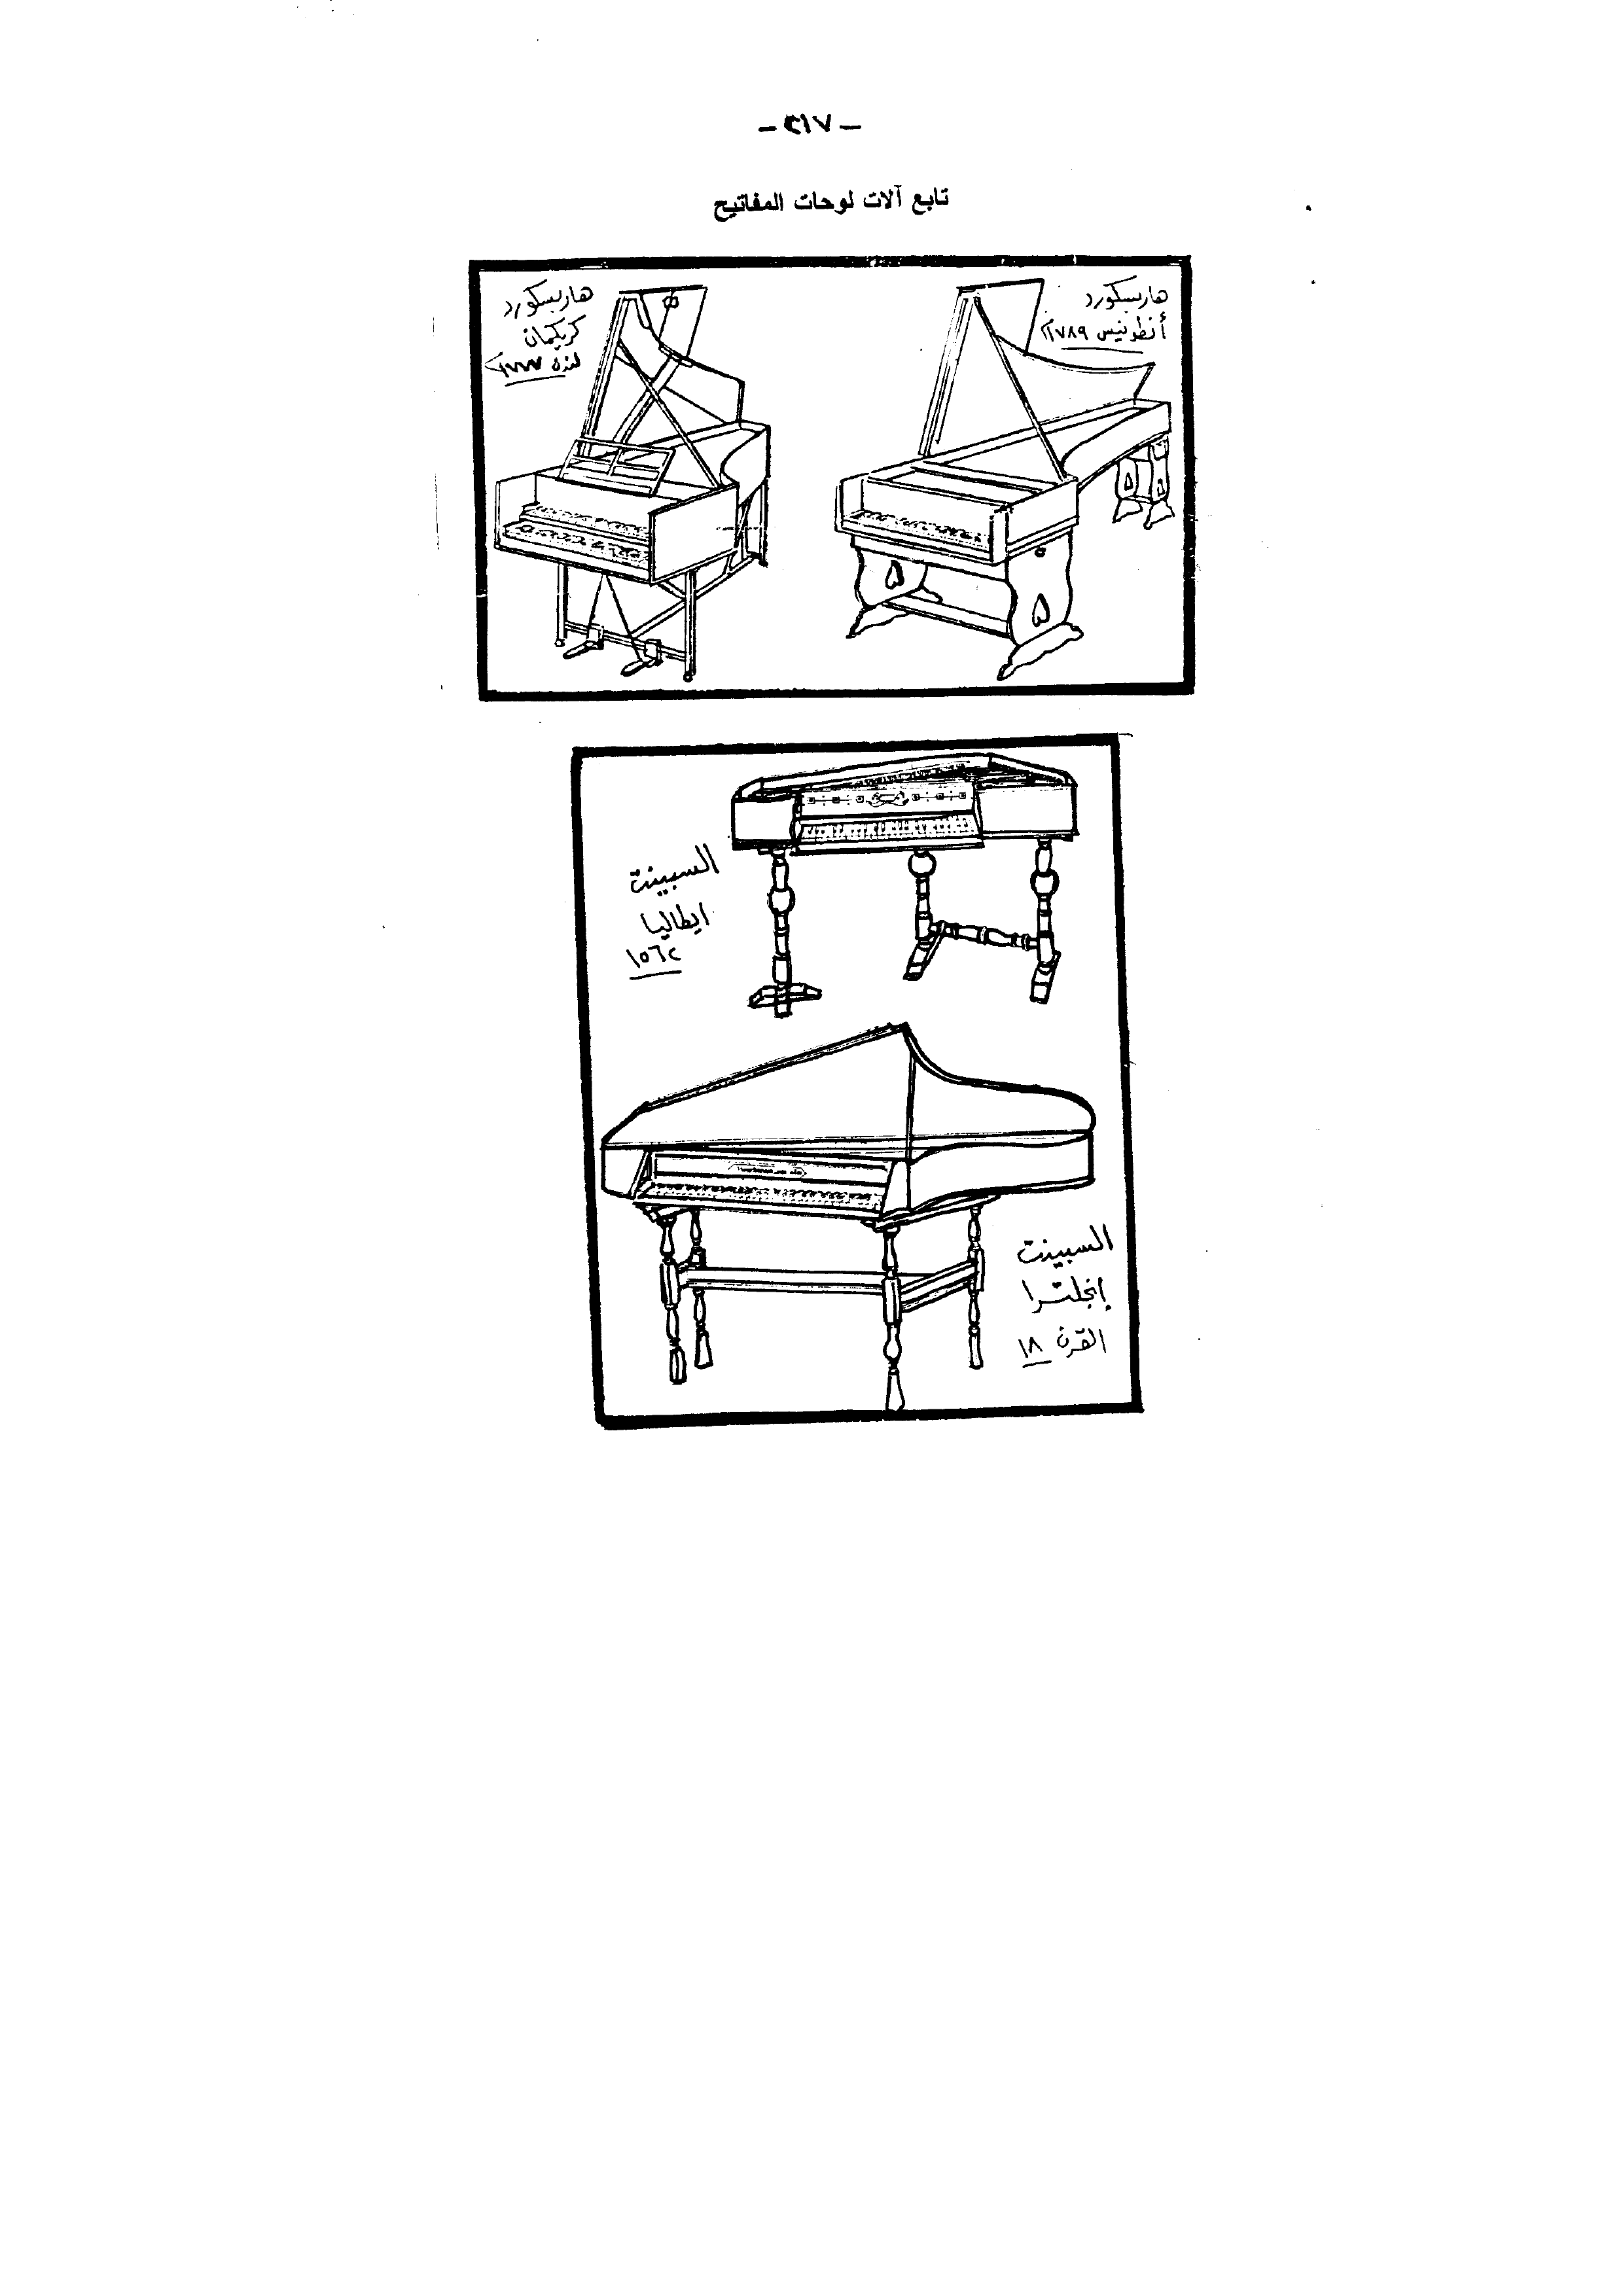 - ٣١٧ -
تابع آلات لوحات المفاتيح
هاربسكورد
أنطونيس ١٧٨٩م
هاربسكورد
كريكمان
لندن
السبينت
ايطاليا
١٥٦٢
السبينت
إنجلترا
القرن ١٨